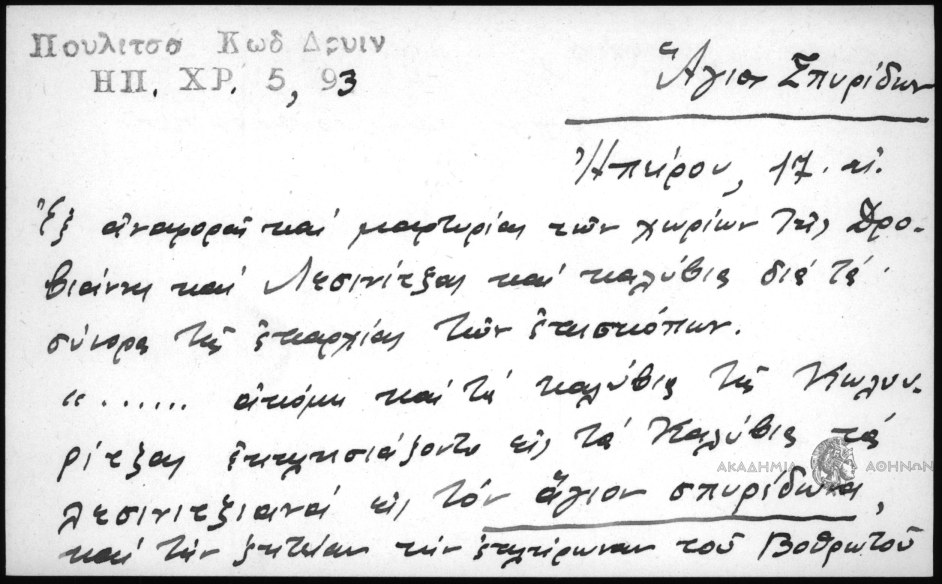 Πουλιτσα Κωδ Δρυιν
ΗΠ. ΧΡ. 5, 93
Ἅγιος Σπυρίδων
Ἠπείρου, 17. αἰ.
Ἐξ ἀναφορᾶς καί μαρτυρίας τῶν χωρίων τῆς Δρο-
βιάνης καί Λεσινίτζας καί καλύβια διά τά
σύνορα τῆς ἐπαρχίας τῶν ἐπισκόπων.
“....... ἀκόμη καί τά καλύβια τῆς Κωλυυ-
ρίτζας ἐκκλησιάζοντο εἰς τά Καλύβια τά
λεσινιτζιανά εἰς τόν ἅγιον σπυρίδωνα,
καί τήν ζητείαν τήν ἐπλήρωναν τοῦ Βοθρωτοῦ
ΑΚΑΔΗΜΙΑ ΑΘΗΝΩΝ